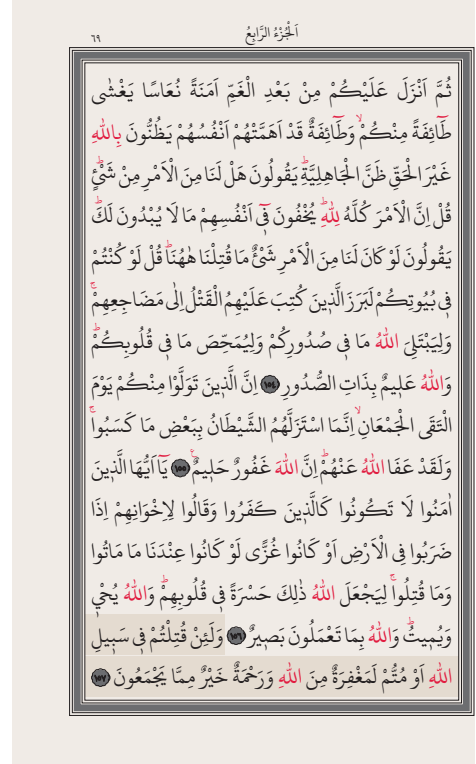 اَلْجُزْءُ الرَّابِعُ
٦٩
ثُمَّ اَنْزَلَ عَلَيْكُمْ مِنْ بَعْدِ الْغَمِّ اَمَنَةً نُعَاسًا يَغْشٰى
طَٓائِفَةً مِنْكُمْۙ وَطَٓائِفَةٌ قَدْ اَهَمَّتْهُمْ اَنْفُسُهُمْ يَظُنُّونَ بِاللّٰهِ
غَيْرَ الْحَقِّ ظَنَّ الْجَاهِلِيَّةِۜ يَقُولُونَ هَلْ لَنَا مِنَ الْاَمْرِ مِنْ شَيْءٍۜ
قُلْ اِنَّ الْاَمْرَ كُلَّهُ لِلّٰهِۜ يُخْفُونَ ف۪ٓي اَنْفُسِهِمْ مَا لَا يُبْدُونَ لَكَۜ
يَقُولُونَ لَوْ كَانَ لَنَا مِنَ الْاَمْرِ شَيْءٌ مَا قُتِلْنَا هٰهُنَاۜ قُلْ لَوْ كُنْتُمْ
ف۪ي بُيُوتِكُمْ لَبَرَزَ الَّذ۪ينَ كُتِبَ عَلَيْهِمُ الْقَتْلُ اِلٰى مَضَاجِعِهِمْۚ
وَلِيَبْتَلِيَ اللّٰهُ مَا ف۪ي صُدُورِكُمْ وَلِيُمَحِّصَ مَا ف۪ي قُلُوبِكُمْۜ
وَاللّٰهُ عَل۪يمٌ بِذَاتِ الصُّدُورِ ﴿١٥٤﴾ اِنَّ الَّذ۪ينَ تَوَلَّوْا مِنْكُمْ يَوْمَ
الْتَقَى الْجَمْعَانِۙ اِنَّمَا اسْتَزَلَّهُمُ الشَّيْطَانُ بِبَعْضِ مَا كَسَبُواۚ
وَلَقَدْ عَفَا اللّٰهُ عَنْهُمْۜ اِنَّ اللّٰهَ غَفُورٌ حَل۪يمٌ۟ ﴿١٥٥﴾ يَٓا اَيُّهَا الَّذ۪ينَ
اٰمَنُوا لَا تَكُونُوا كَالَّذ۪ينَ كَفَرُوا وَقَالُوا لِاِخْوَانِهِمْ اِذَا
ضَرَبُوا فِي الْاَرْضِ اَوْ كَانُوا غُزًّى لَوْ كَانُوا عِنْدَنَا مَا مَاتُوا
وَمَا قُتِلُواۚ لِيَجْعَلَ اللّٰهُ ذٰلِكَ حَسْرَةً ف۪ي قُلُوبِهِمْۜ وَاللّٰهُ يُحْي۪
وَيُم۪يتُۜ وَاللّٰهُ بِمَا تَعْمَلُونَ بَص۪يرٌ ﴿١٥٦﴾ وَلَئِنْ قُتِلْتُمْ ف۪ي سَب۪يلِ
اللّٰهِ اَوْ مُتُّمْ لَمَغْفِرَةٌ مِنَ اللّٰهِ وَرَحْمَةٌ خَيْرٌ مِمَّا يَجْمَعُونَ ﴿١٥٧﴾